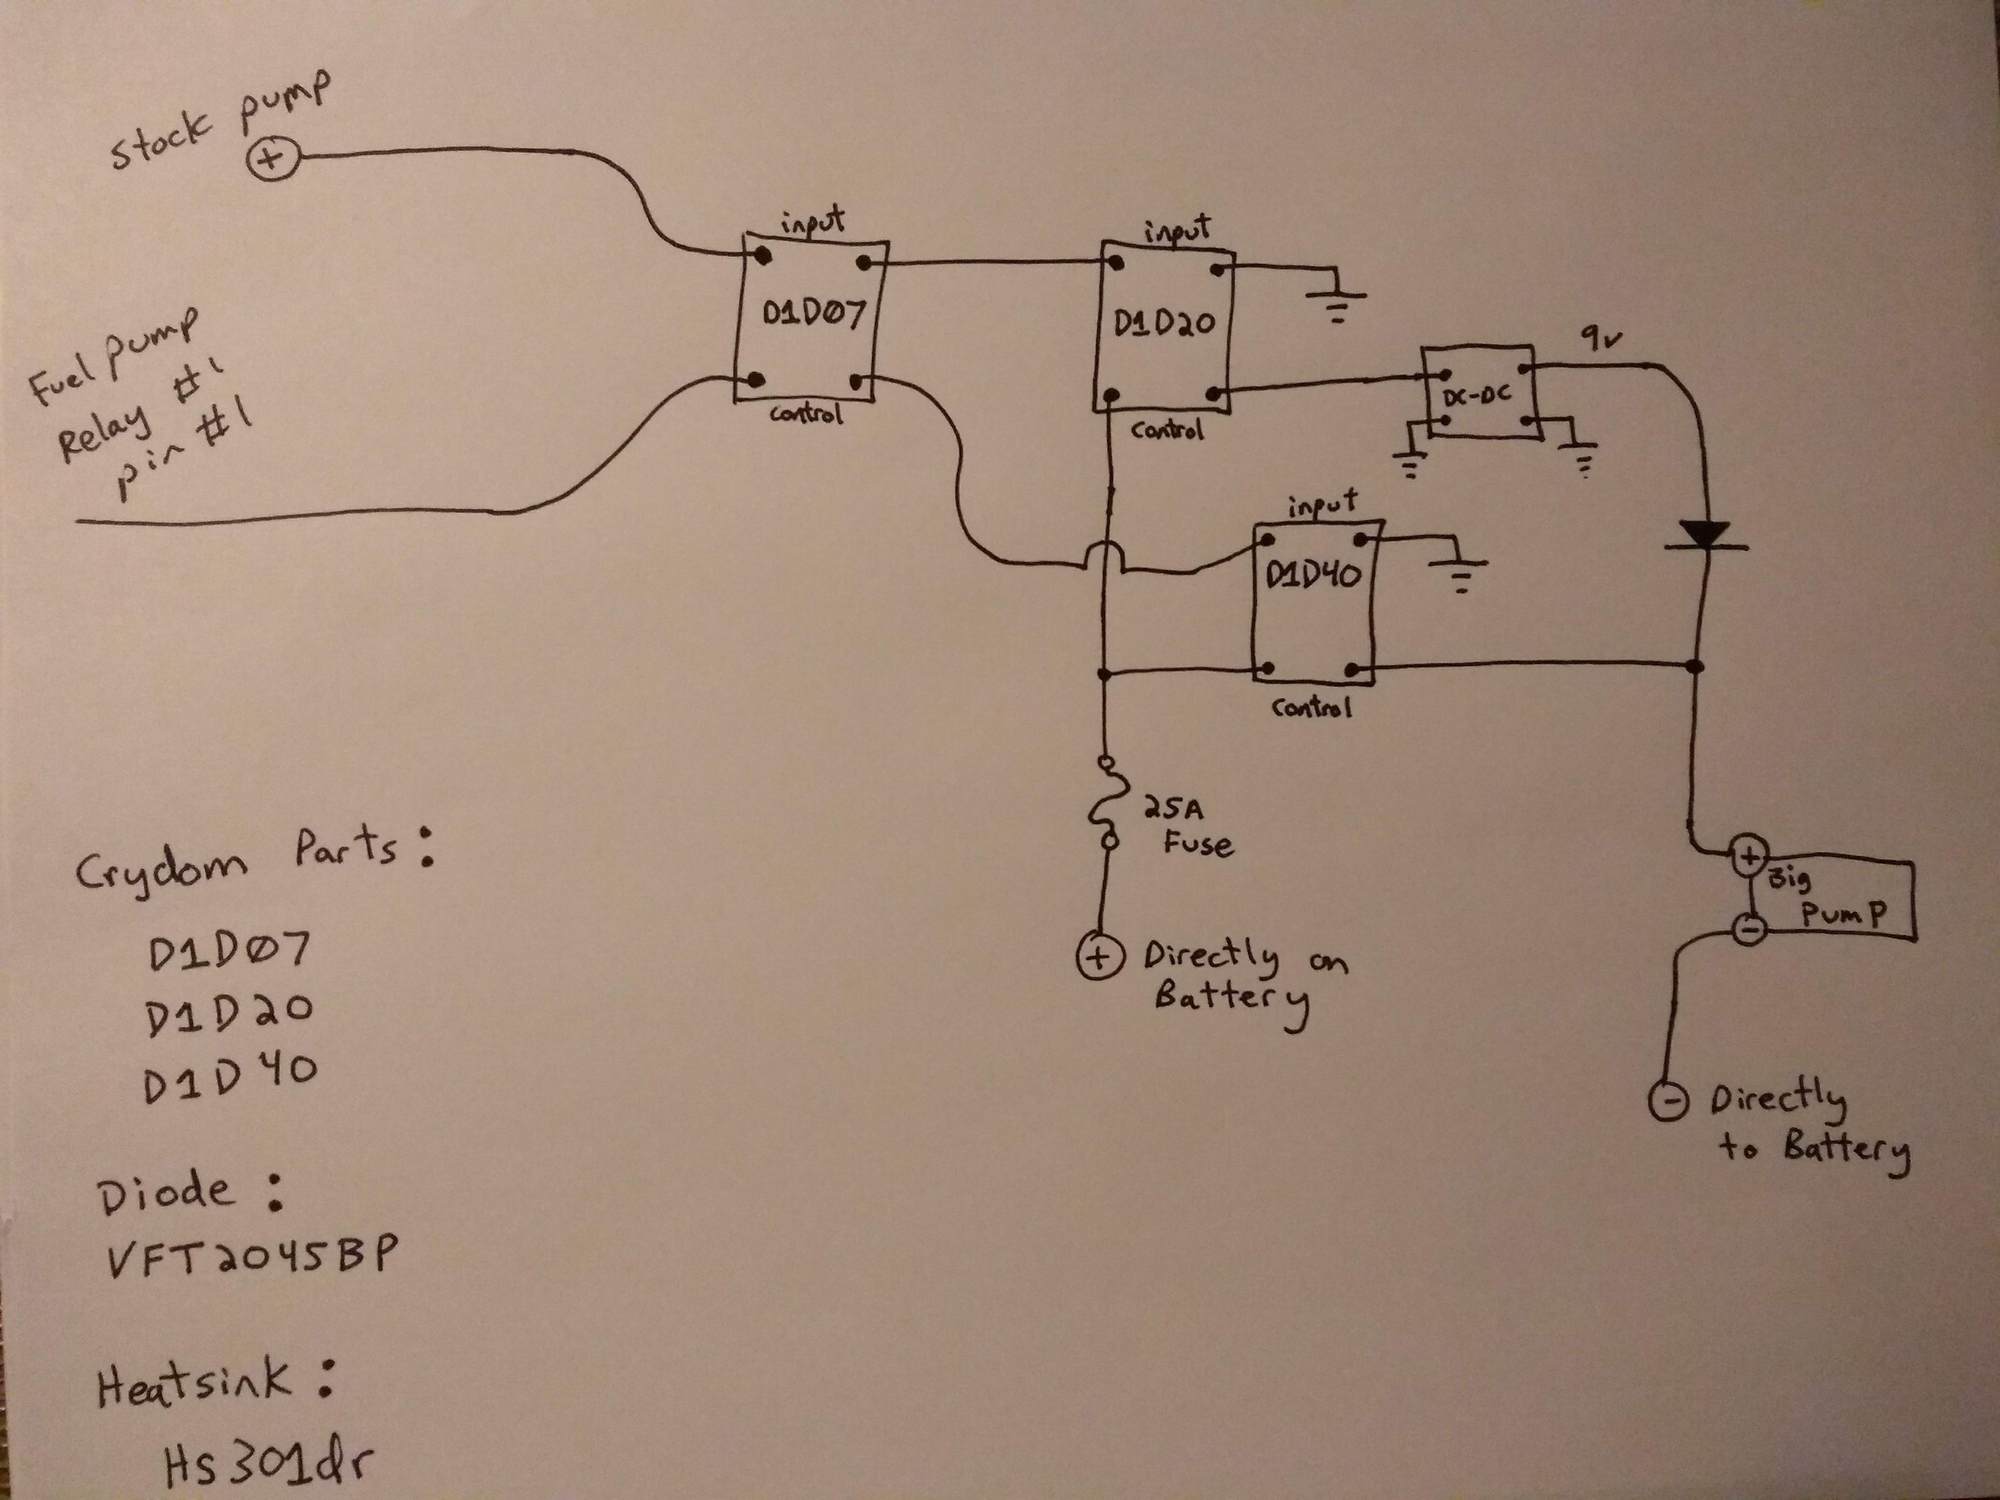 Stock pump
+
Fuel pump
Relay #1
pin #1
input
D1D07
control
input
D1D20
control
DC-DC
9v
input
D1D40
control
25A
Fuse
+ Directly on
Battery
+
Big
Pump
-
- Directly
to Battery
Crydom Parts:
D1D07
D1D20
D1D40
Diode:
VFT2045BP
Heatsink:
Hs301dr